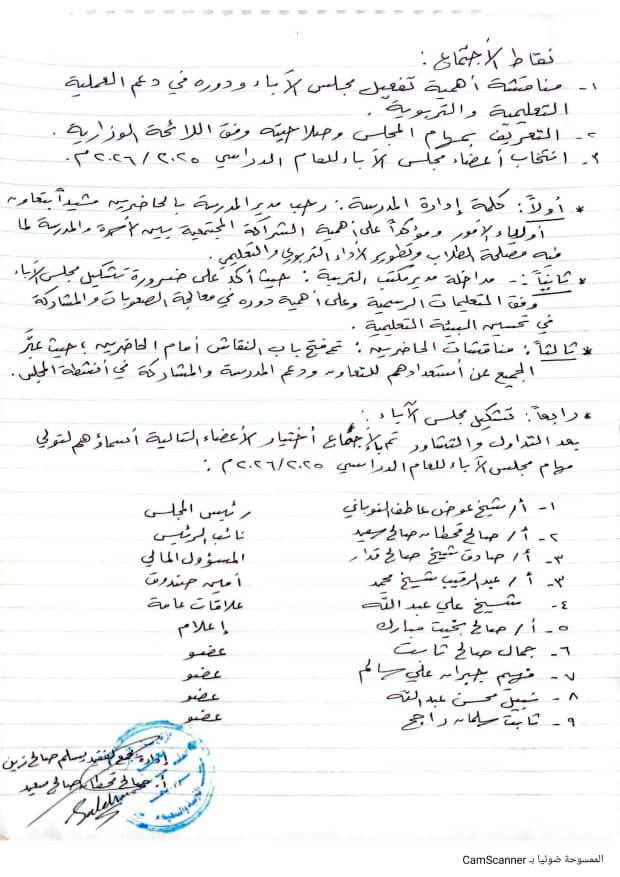 نقاط الأجتماع :
١- مناقشة أهمية تفعيل مجلس الآباء ودوره في دعم العملية
التعليمية والتربوية .
٢- التعريف بمهام المجلس وصلاحيته وفق اللائحة الوزارية .
٣. انتخاب أعضاء مجلس الآباء للعام الدراسي ٢٠٢٥/٢٠٢٦م.
* أولاً: كلمة إدارة المدرسة : رحب مدير المدرسة بالحاضرين مشيداً بتعاون
أولياء الأمور ومؤكداً على أهمية الشراكة المجتمعية بين الأسرة والمدرسة لما
فيه مصلحة الطلاب وتطوير الأداء التربوي والتعليمي.
* ثانياً :- مداخلة مدير مكتب التربية : حيث أكد على ضرورة تشكيل مجلس الآباء
وفق التعليمات الرسمية وعلى أهمية دوره في معالجة الصعوبات والمشاركة
في تحسين البيئة التعليمية .
* ثالثاً : مناقشات الحاضرين : تم فتح باب النقاش أمام الحاضرين ، حيث عبَّر
الجميع عن أستعدادهم للتعاون ودعم المدرسة والمشاركة في أنشطة المجلس.
* رابعاً: تشكيل مجلس الآباء :
بعد التداول والتشاور تم بالأجماع أختيار الأعضاء التالية أسماؤهم لتولي
مهام مجلس الآباء للعام الدراسي ٢٠٢٥/٢٠٢٦م :
١- أ/ شيخ عوض عاطف النوباني رئيس المجلس
٢- أ/ صالح قحطان صالح سعيد نائب الرئيس
٣- أ/ صادق شيخ صالح قدار المسؤول المالي
٣- أ/ عبدالرقيب شيخ محمد أمين صندوق
٤- شيخ علي عبدالله علاقات عامة
٥- أ/ صالح بخيت مبارك إعلام
٦- جمال صالح ثابت عضو
٧- فهيم جبران علي سالم عضو
٨- نبيل محسن عبدالله عضو
٩- ثابت سلمان راجح عضو
إدارة مجمع الفقيد مسلم صالح زين
أ. صالح قحطان صالح سعيد
الممسوحة ضوئيا بـ CamScanner